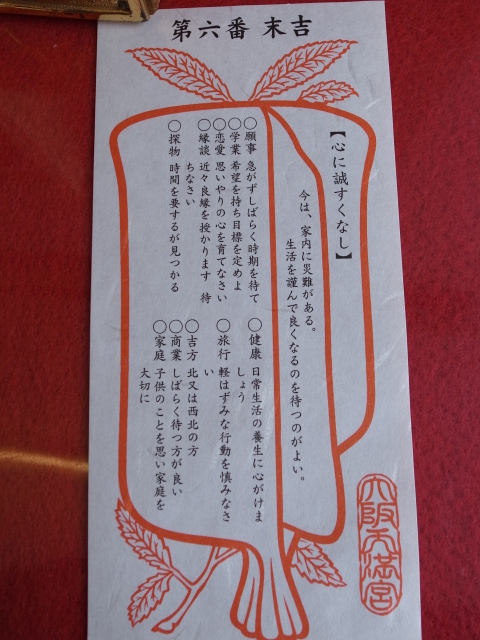 第六番 末吉
【心に誠すくなし】
今は、家内に災難がある。
生活を謹んで良くなるのを待つのがよい。
○願事 急がずしばらく時期を待て
○学業 希望を持ち目標を定めよ
○恋愛 思いやりの心を育てなさい
○縁談 近々良縁を授かります 待
ちなさい
○探物 時間を要するが見つかる
○健康 日常生活の養生に心がけま
しょう
○旅行 軽はずみな行動を慎みなさ
い
○吉方 北又は西北の方
○商業 しばらく待つ方が良い
○家庭 子供のことを思い家庭を
大切に
大阪天満宮